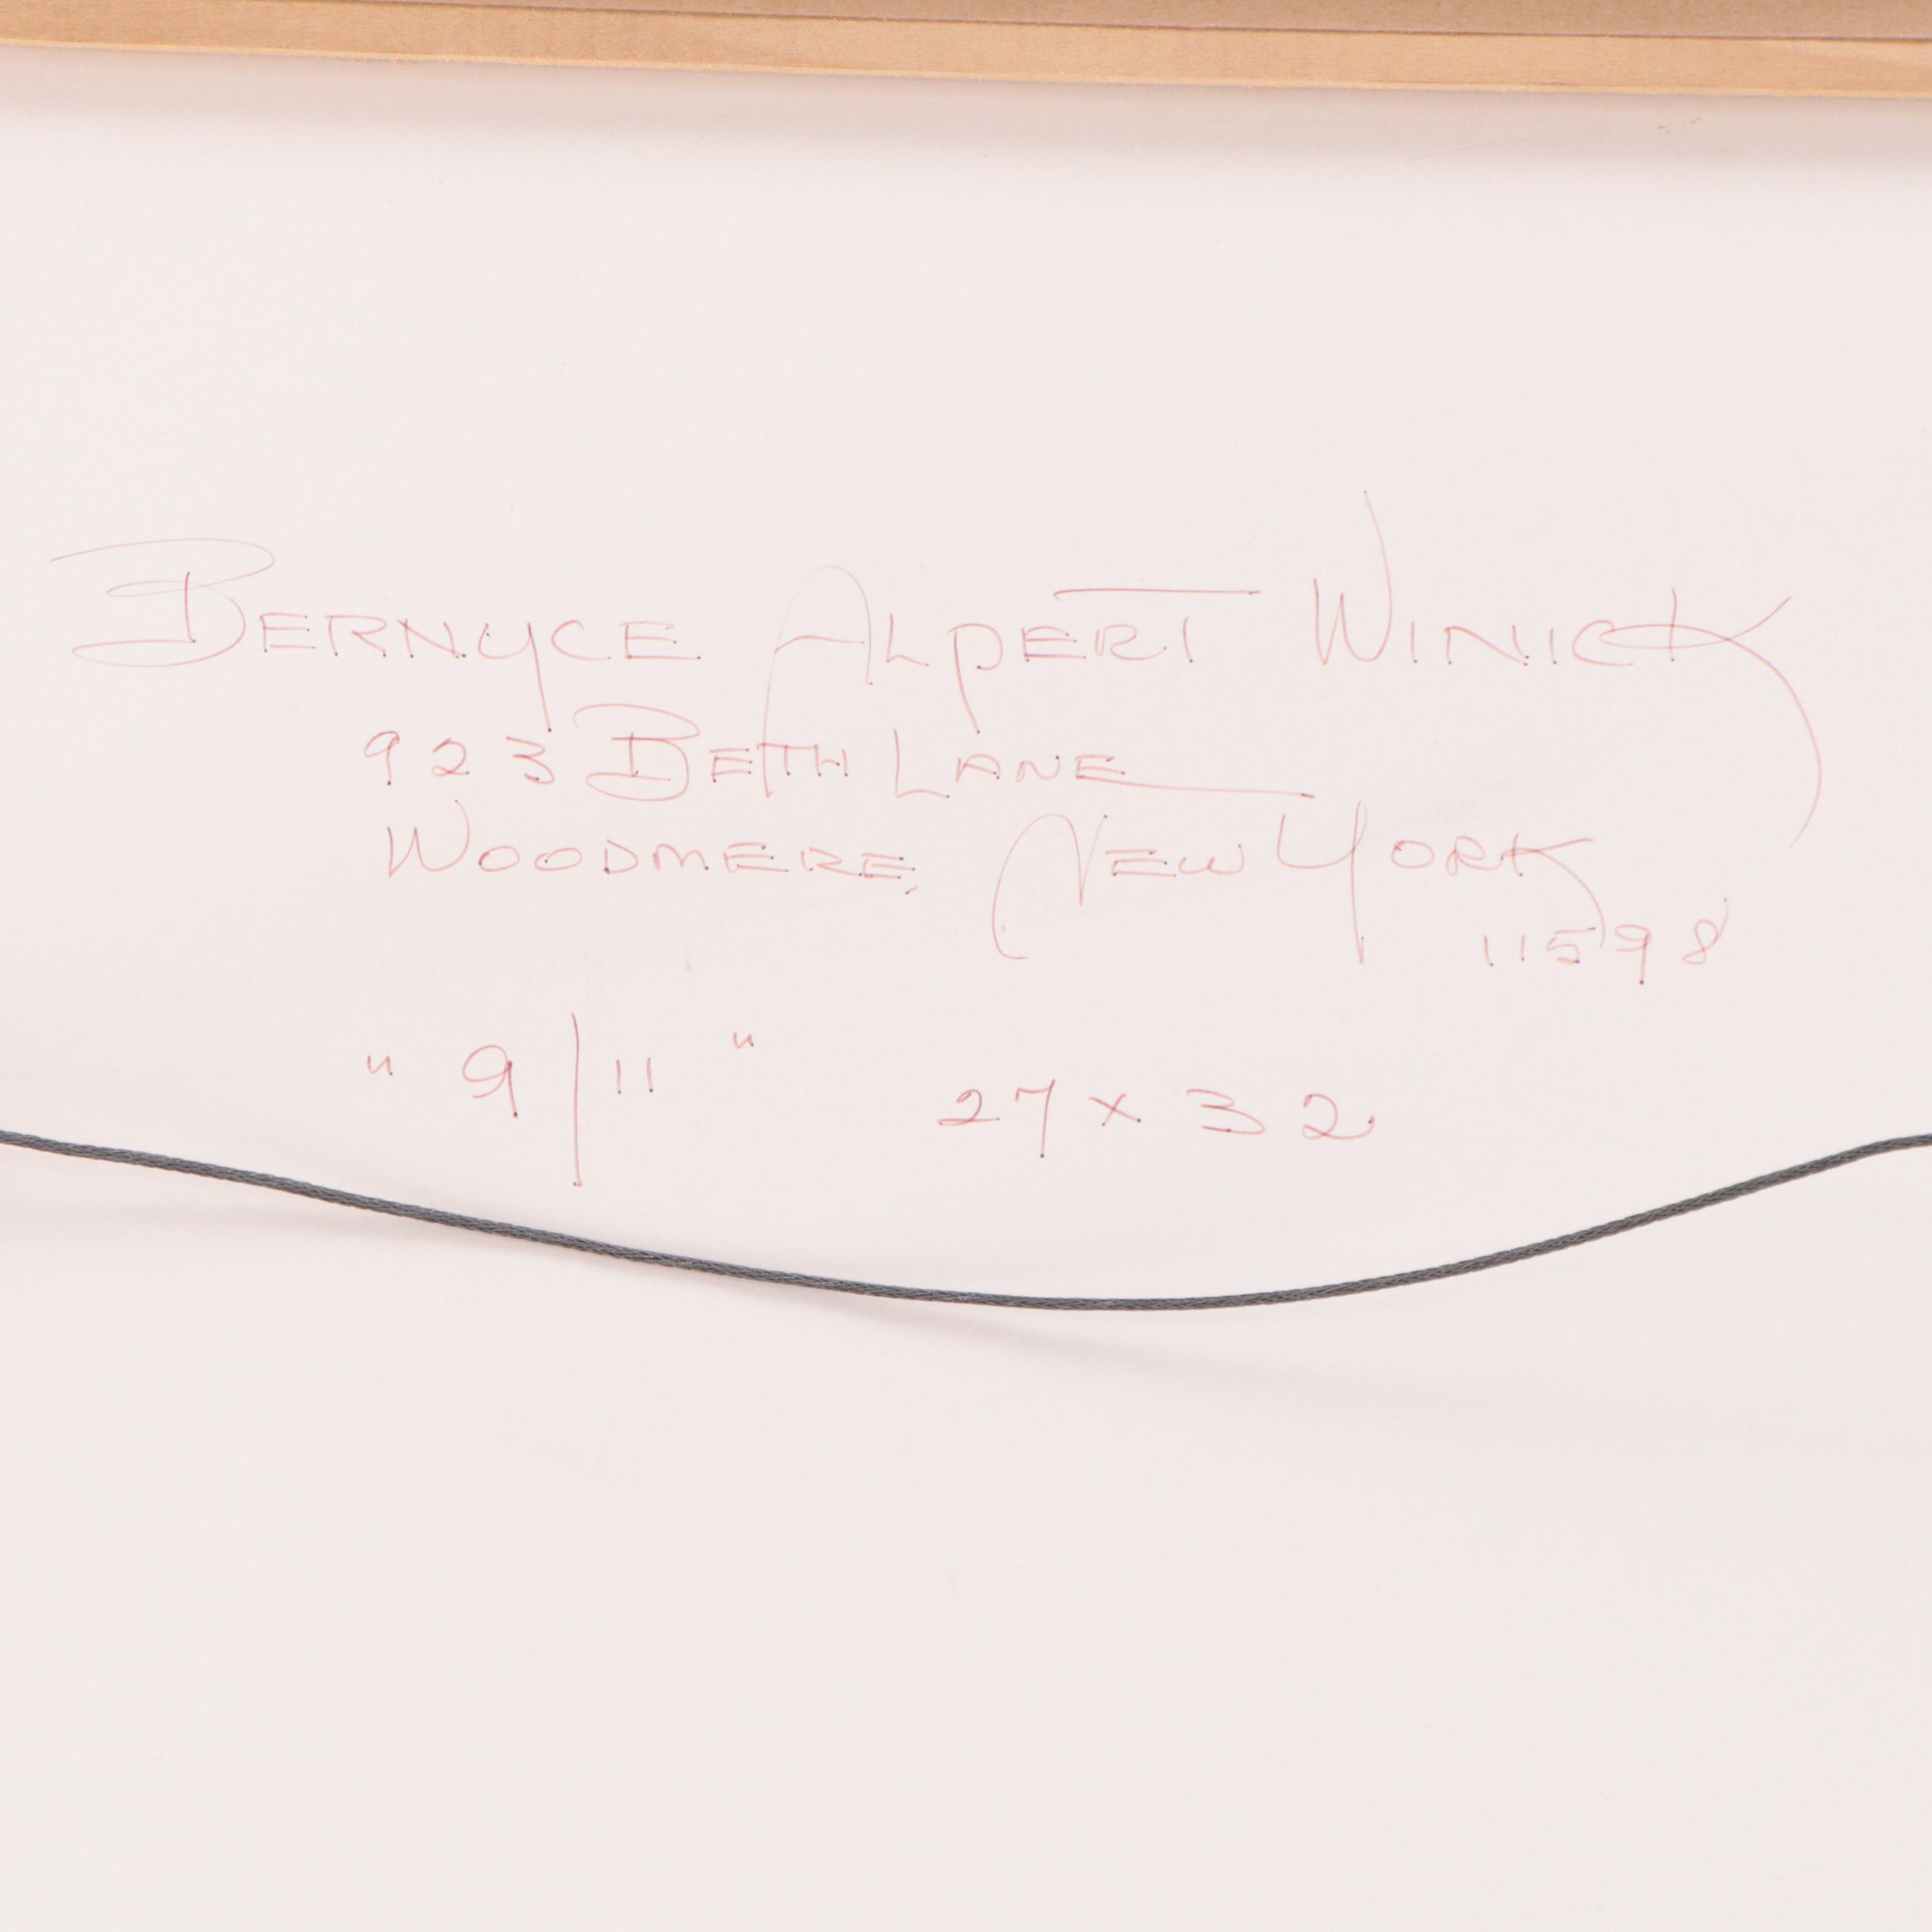 BERNYCE ALPERT WINICK
923 BETH LANE
WOODMERE, NEW YORK
11598
" 9/11 " 27 x 32